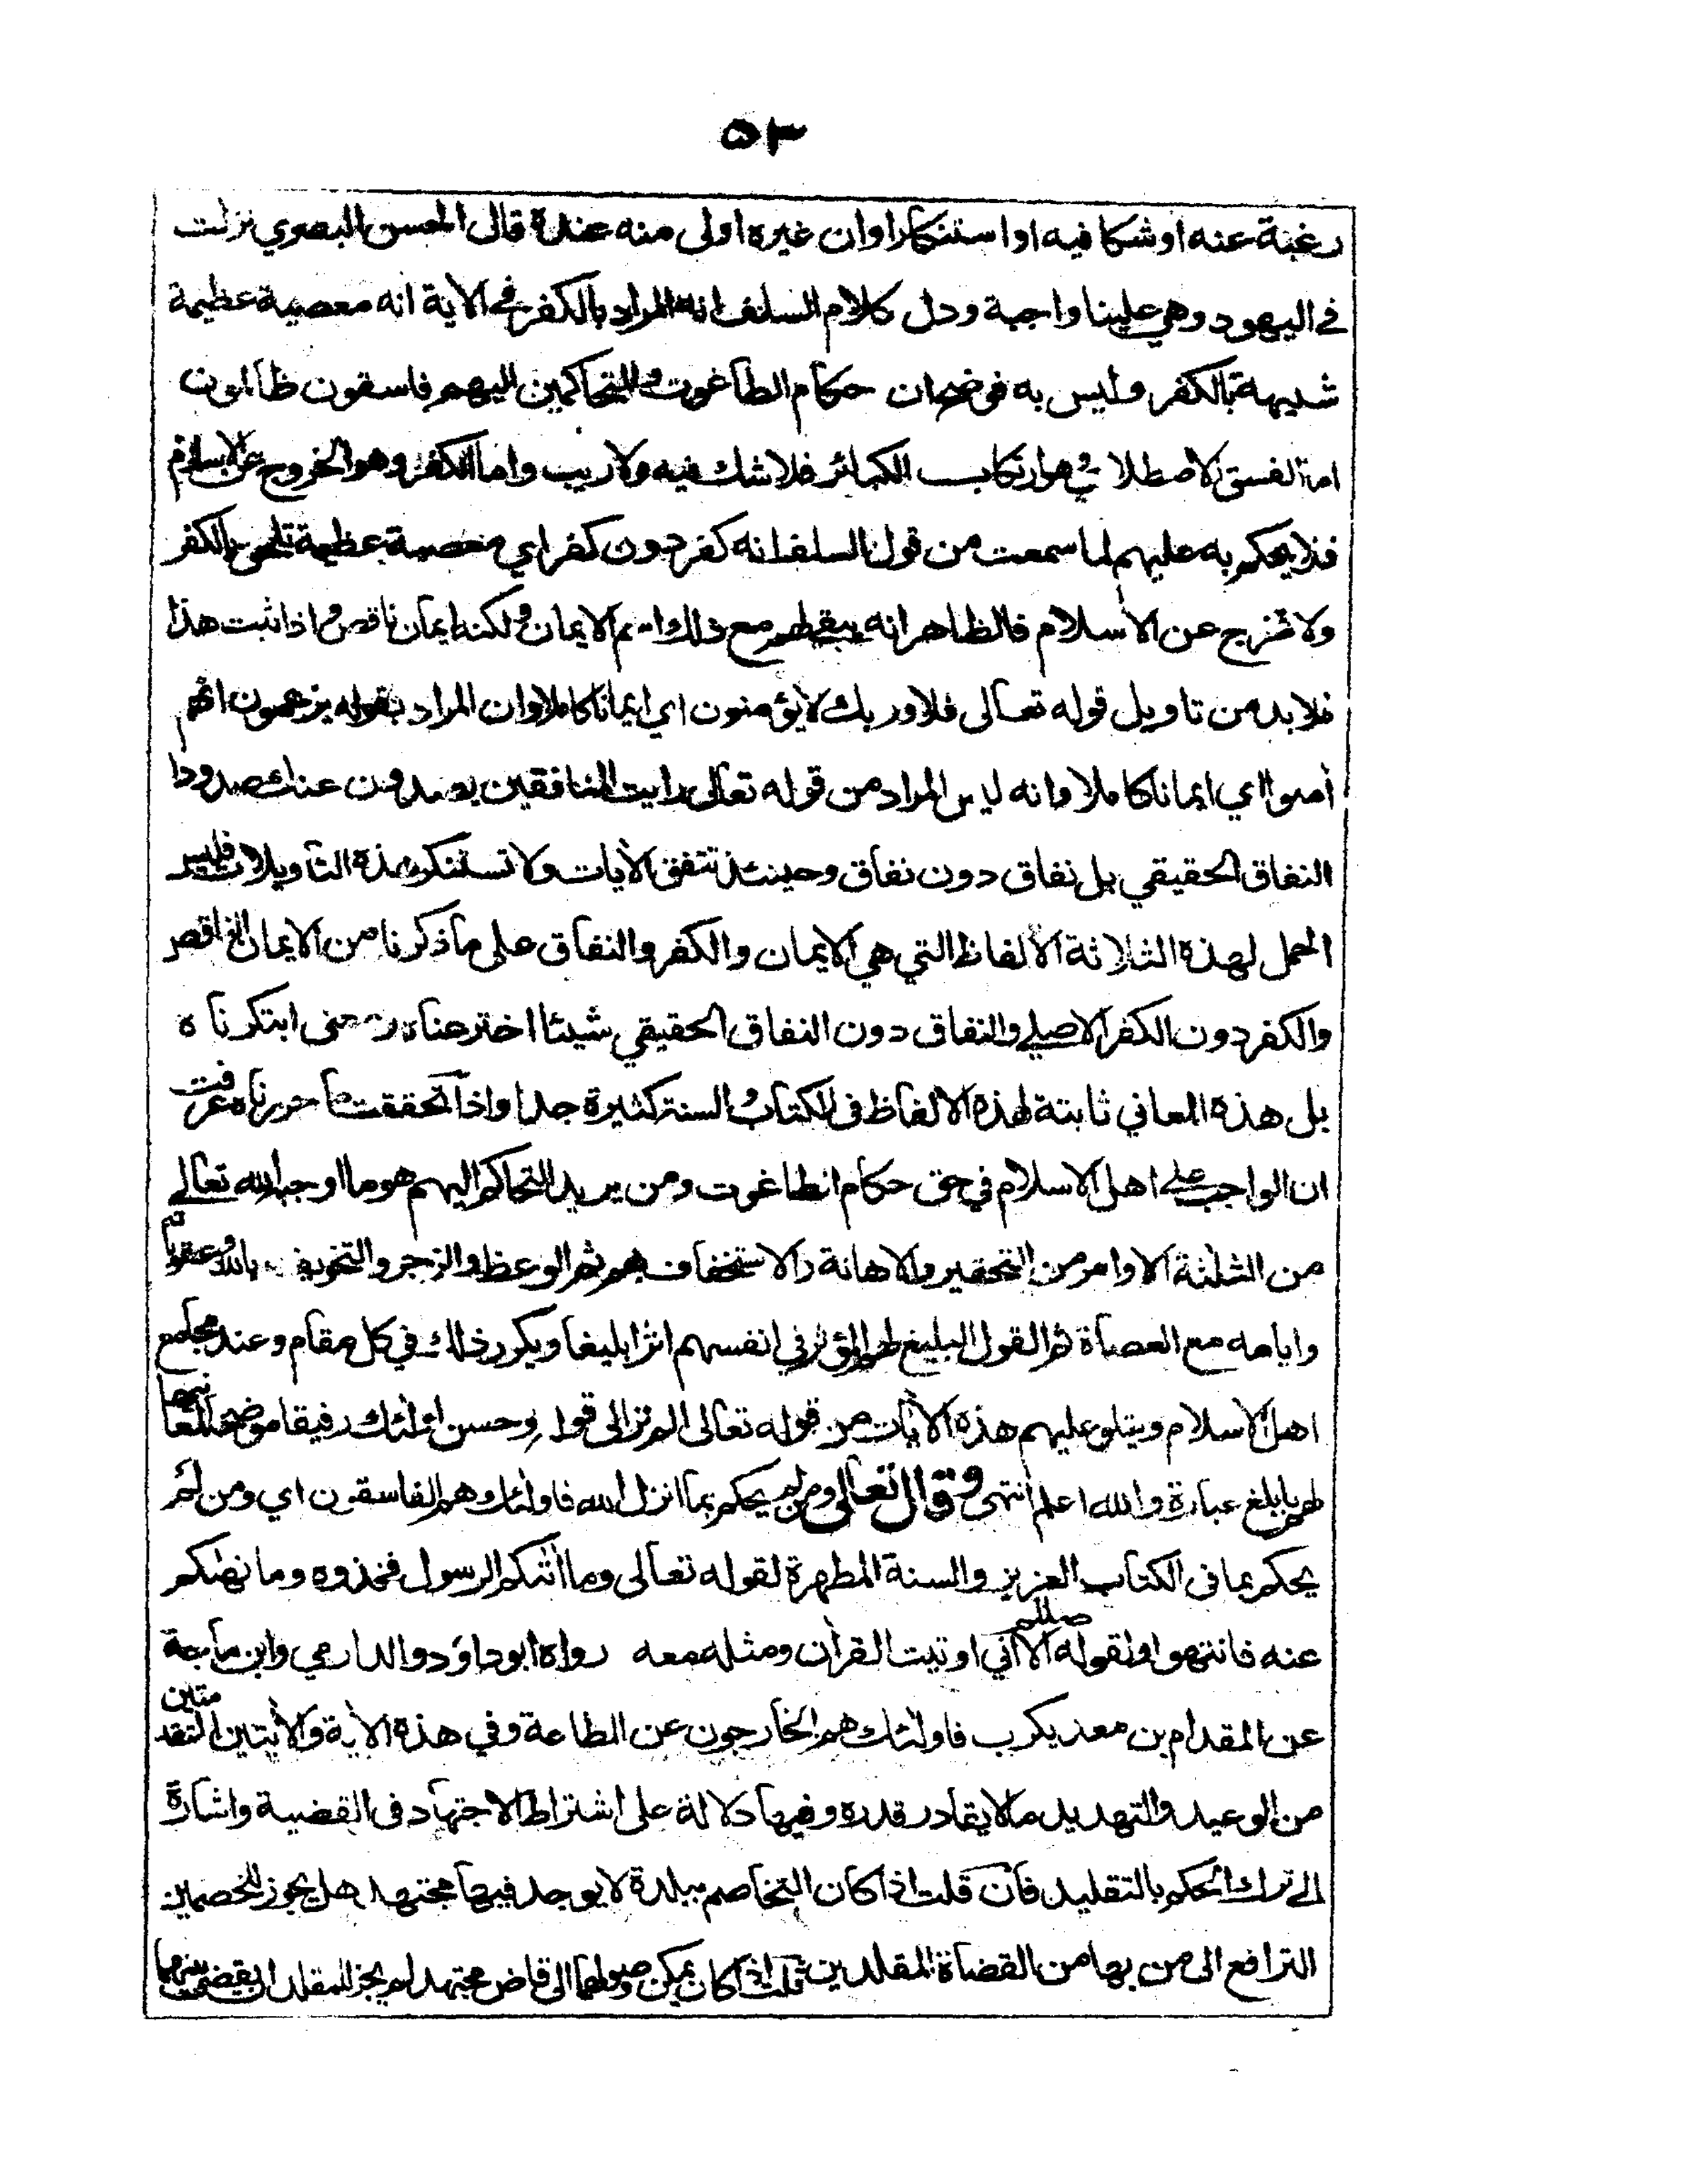 ٥٣
رغبة عنه او شكا فيه او استنكارا وان غيره اولى منه عنده قال الحسن البصري نزلت
في اليهود وهي علينا واجبة ودل كلام السلف انه المراد بالكفر في الآية انه معصية عظيمة
شبيهة بالكفر وليس به فى ان حكام الطاغوت والمتحاكمين اليهم فاسقون ظالمون
اما الفسق الاصطلاحي هو ارتكاب الكبائر فلا شك فيه ولا ريب واما الكفر وهو الخروج عن الاسلام
فلا يحكم به عليهم لما سمعت من قول السلف انه كفر دون كفر اي معصية عظيمة تسمى بالكفر
ولا تخرج عن الاسلام فالظاهر انه يبقى لهم مع ذلك اسم الايمان ولكنه ايمان ناقص واذا ثبت هذا
فلا بد من تاويل قوله تعالى فلا وربك لا يؤمنون اي ايمانا كاملا وان المراد بقوله يزعمون انهم
أمنوا اي ايمانا كاملا وانه ليس المراد من قوله تعالى رايت المنافقين يصدون عنك صدودا
النفاق الحقيقي بل نفاق دون نفاق وحينئذ تتفق الأيات ولا تستنكر هذه التأويلات فليس
الحمل لهذه الثلاثة الألفاظ التي هي الايمان والكفر والنفاق على ما ذكرنا من الايمان الناقص
والكفر دون الكفر الاصلي والنفاق دون النفاق الحقيقي شيئا اخترعناه ومعنى ابتكرناه
بل هذه المعاني ثابتة لهذه الالفاظ فى الكتاب والسنة كثيرة جدا واذا تحققت ما حررناه عرفت
ان الواجب على اهل الاسلام في حق حكام الطاغوت ومن يريد التحاكم اليهم هو ما اوجبه الله تعالى
من الثلثة الاوامر من التحقير والاهانة والاستخفاف بهم ثم الوعظ والزجر والتخويف بالله وعقوباته
وايامه مع العصاة ثم القول البليغ لهم المؤثر في انفسهم اثرا بليغا ويكرر ذلك في كل مقام وعند مجامع
اهل الاسلام ويتلو عليهم هذه الأيات من قوله تعالى الم تر الى قوله وحسن اولئك رفيقا موضحا لمعانيها
لهم بابلغ عبارة والله اعلم انتهى وقال تعالى ومن لم يحكم بما انزل الله فاولئك هم الفاسقون اي ومن لم
يحكم بما فى الكتاب العزيز والسنة المطهرة لقوله تعالى وما اتٰكم الرسول فخذوه وما نهٰكم
عنه فانتهوا ولقوله صللم الا اني اوتيت القرأن ومثله معه رواه ابو داؤد والدارمي وابن ماجة
عن المقدام بن معديكرب فاولئك هم الخارجون عن الطاعة وفي هذه الأية والأيتين المتقدمتين
من الوعيد والتهديد ما لا يقادر قدره وفيها دلالة على اشتراط الاجتهاد فى القضية واشارة
الى ترك الحكم بالتقليد فأن قلت اذا كان التخاصم ببلدة لا يوجد فيها مجتهد هل يجوز للخصمين
الترافع الى من بها من القضاة المقلدين قلت اذا كان يمكن وصولهما الى قاض مجتهد لم يجز للمقلد ان يقضي بينهما